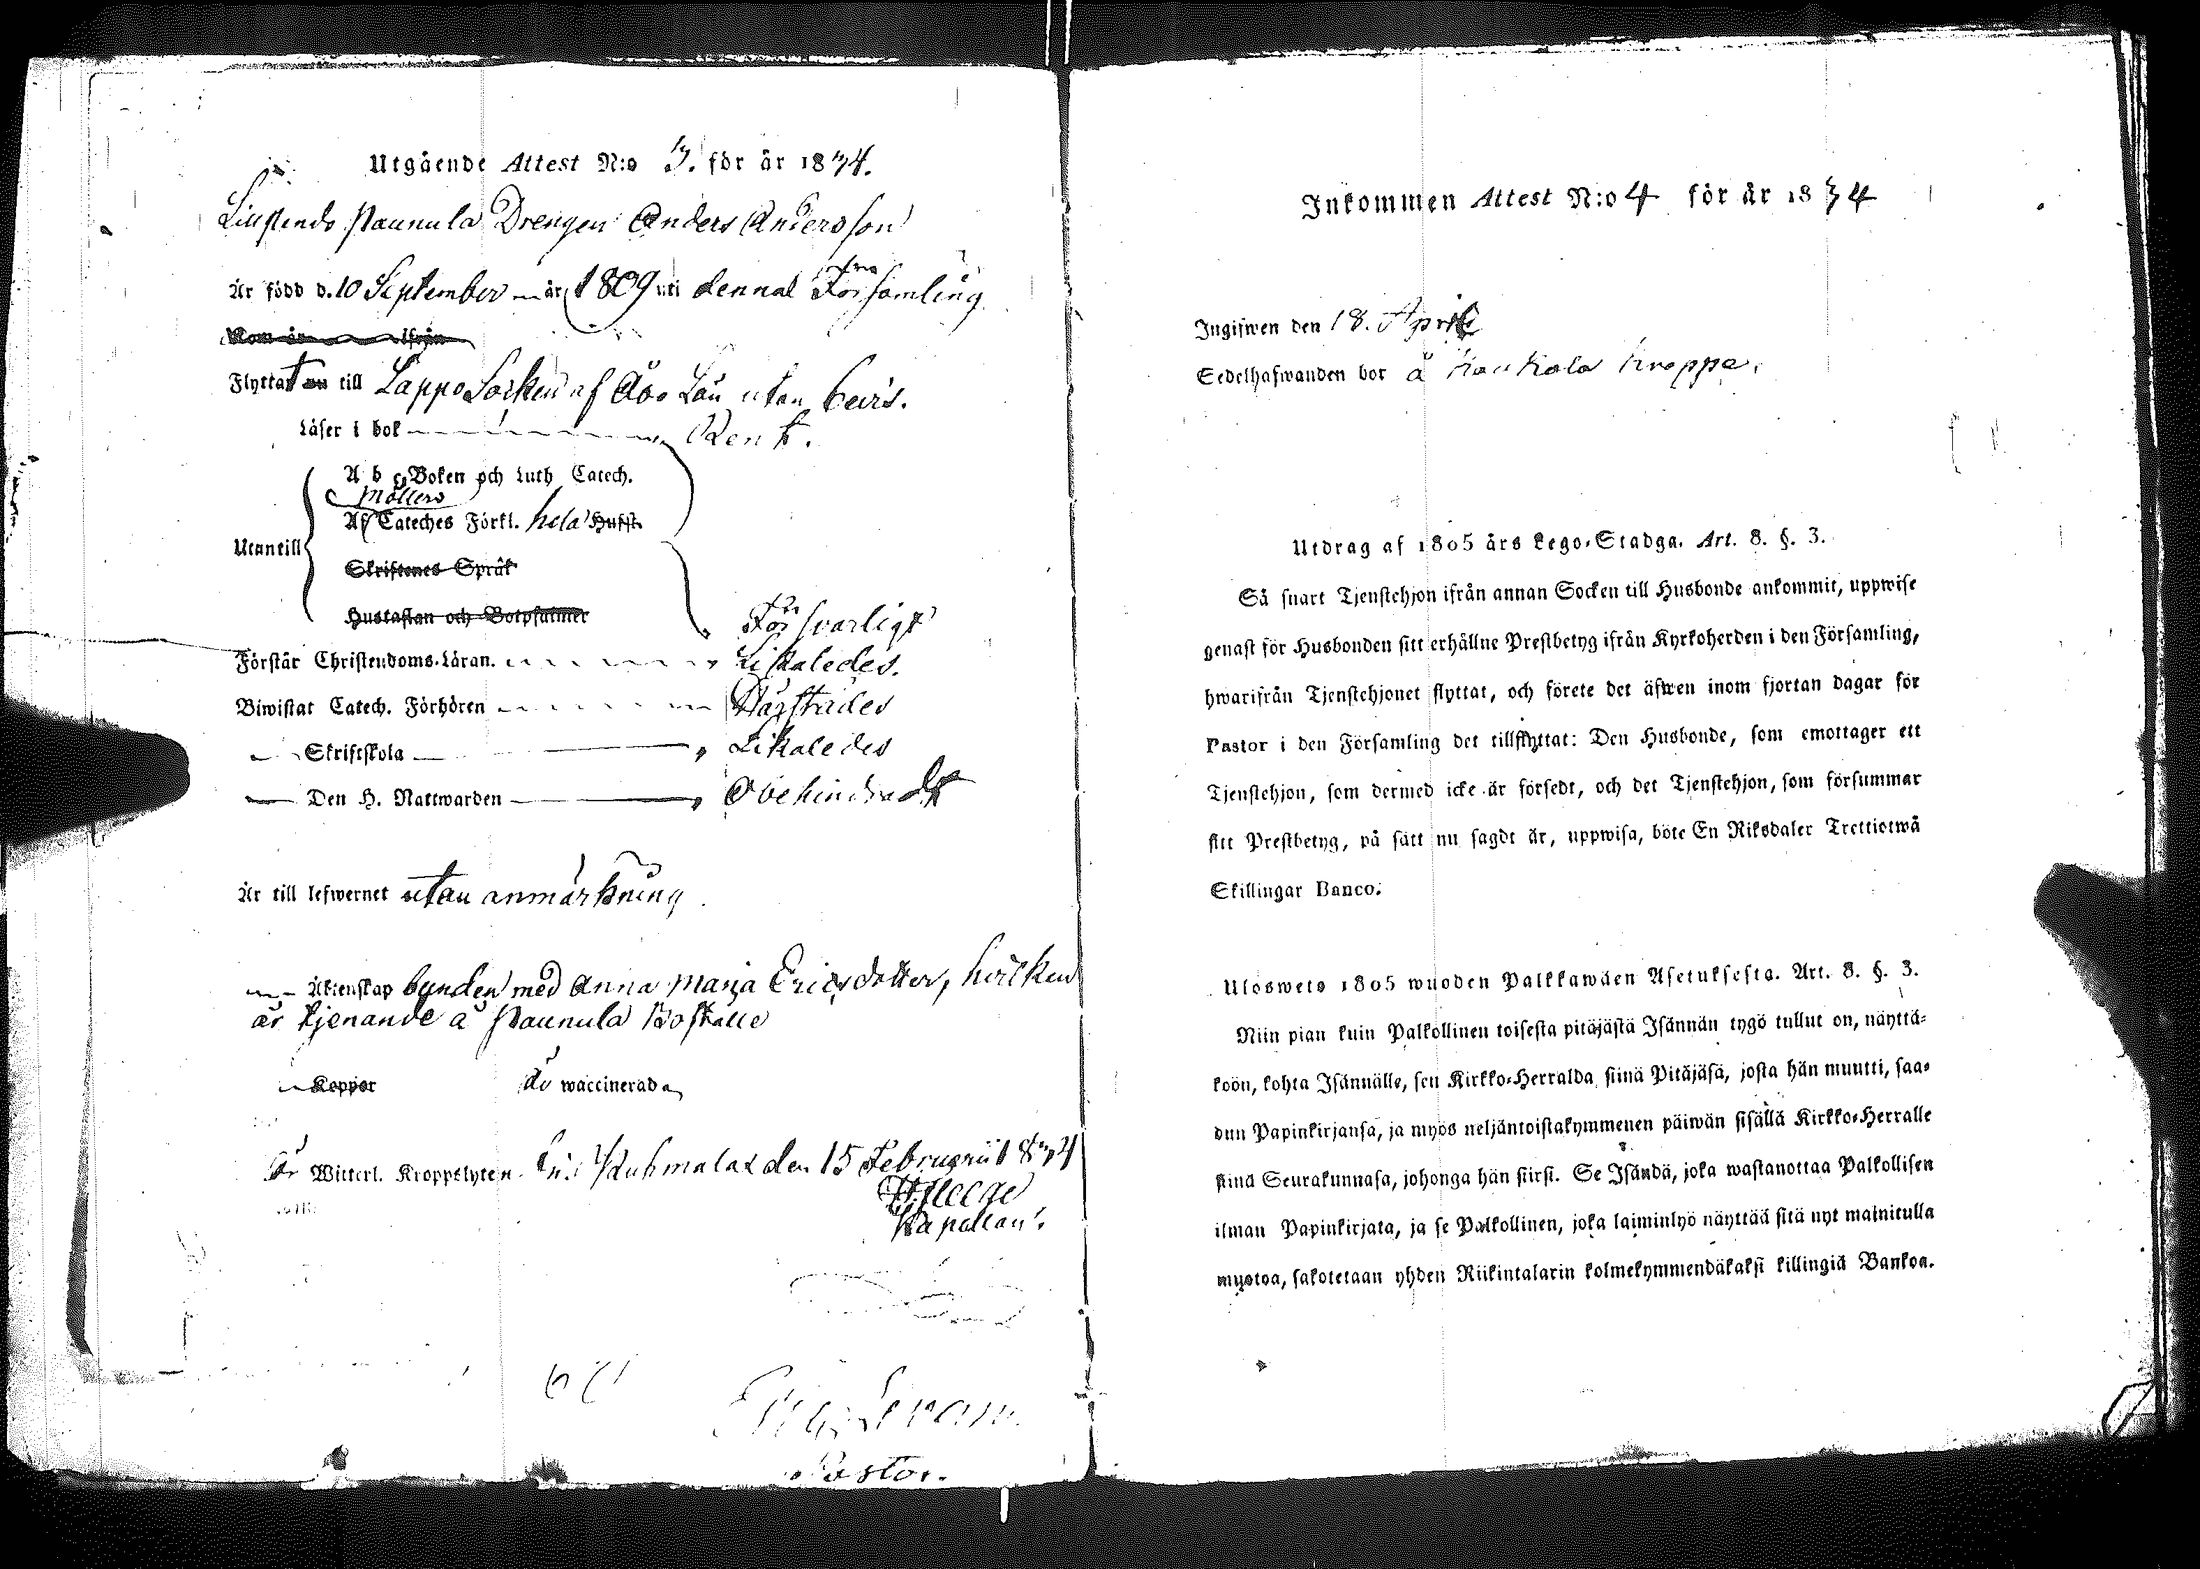 Utgående Attest N:o 3. för år 1834.
Paunula Drengen Anders Andersson
Är född d. 10 September år 1809 uti denna Församling
Kom år ifrån
Flyttat nu till Lappo Socken af Åbo Län utan bevis.
Läser i bok Rent.
A b c Boken och Luth Catech.
Möllers
Af Cateches Förkl. hela Husst.
Utantill
Skriftenes Språk
Hustaflan och Botpsalmer
Försvarligt
Förstår Christendoms-Läran. Likaledes.
Biwistat Catech. Förhören Härstädes
Skriftskola Likaledes
Den H. Nattwarden Obehindradt
Är till lefwernet utan anmärkning
Äktenskap bunden med Anna Maria Ericsdotter, hvilken
är tjenande å Paunula Boställe
Koppor är waccinerad
Är Witterl. Kroppslyten fri. Kuhmalax den 15 Februarii 1834
Kapellan.
Pastor.
Inkommen Attest N:o 4 för år 1834
Ingifwen den 18. April
Sedelhafwanden bor å Kaukola Kroppa.
Utdrag af 1805 års Lego-Stadga. Art. 8. §. 3.
Så snart Tjenstehjon ifrån annan Socken till Husbonde ankommit, uppwise
genast för Husbonden sitt erhållne Prestbetyg ifrån Kyrkoherden i den Församling,
hwarifrån Tjenstehjonet flyttat, och förete det äfwen inom fjortan dagar för
Pastor i den Församling det tillflyttat: Den Husbonde, som emottager ett
Tjenstehjon, som dermed icke är försedt, och det Tjenstehjon, som försummar
sitt Prestbetyg, på sätt nu sagdt är, uppwisa, böte En Riksdaler Trettiotwå
Skillingar Banco.
Uloswete 1805 wuoden Palkkawäen Asetuksesta. Art. 8. §. 3.
Niin pian kuin Palkollinen toisesta pitäjästä Isännän tygö tullut on, näyttä-
köön, kohta Isännälle, sen Kirkko-Herralda siinä Pitäjäsä, josta hän muutti, saa-
dun Papinkirjansa, ja myös neljäntoistakymmenen päiwän sisällä Kirkko-Herralle
siinä Seurakunnasa, johonga hän siirsi. Se Isändä, joka wastanottaa Palkollisen
ilman Papinkirjata, ja se Palkollinen, joka laiminlyö näyttää sitä nyt mainitulla
muotoa, sakotetaan yhden Riikintalarin kolmekymmendäkaksi killingiä Bankoa.